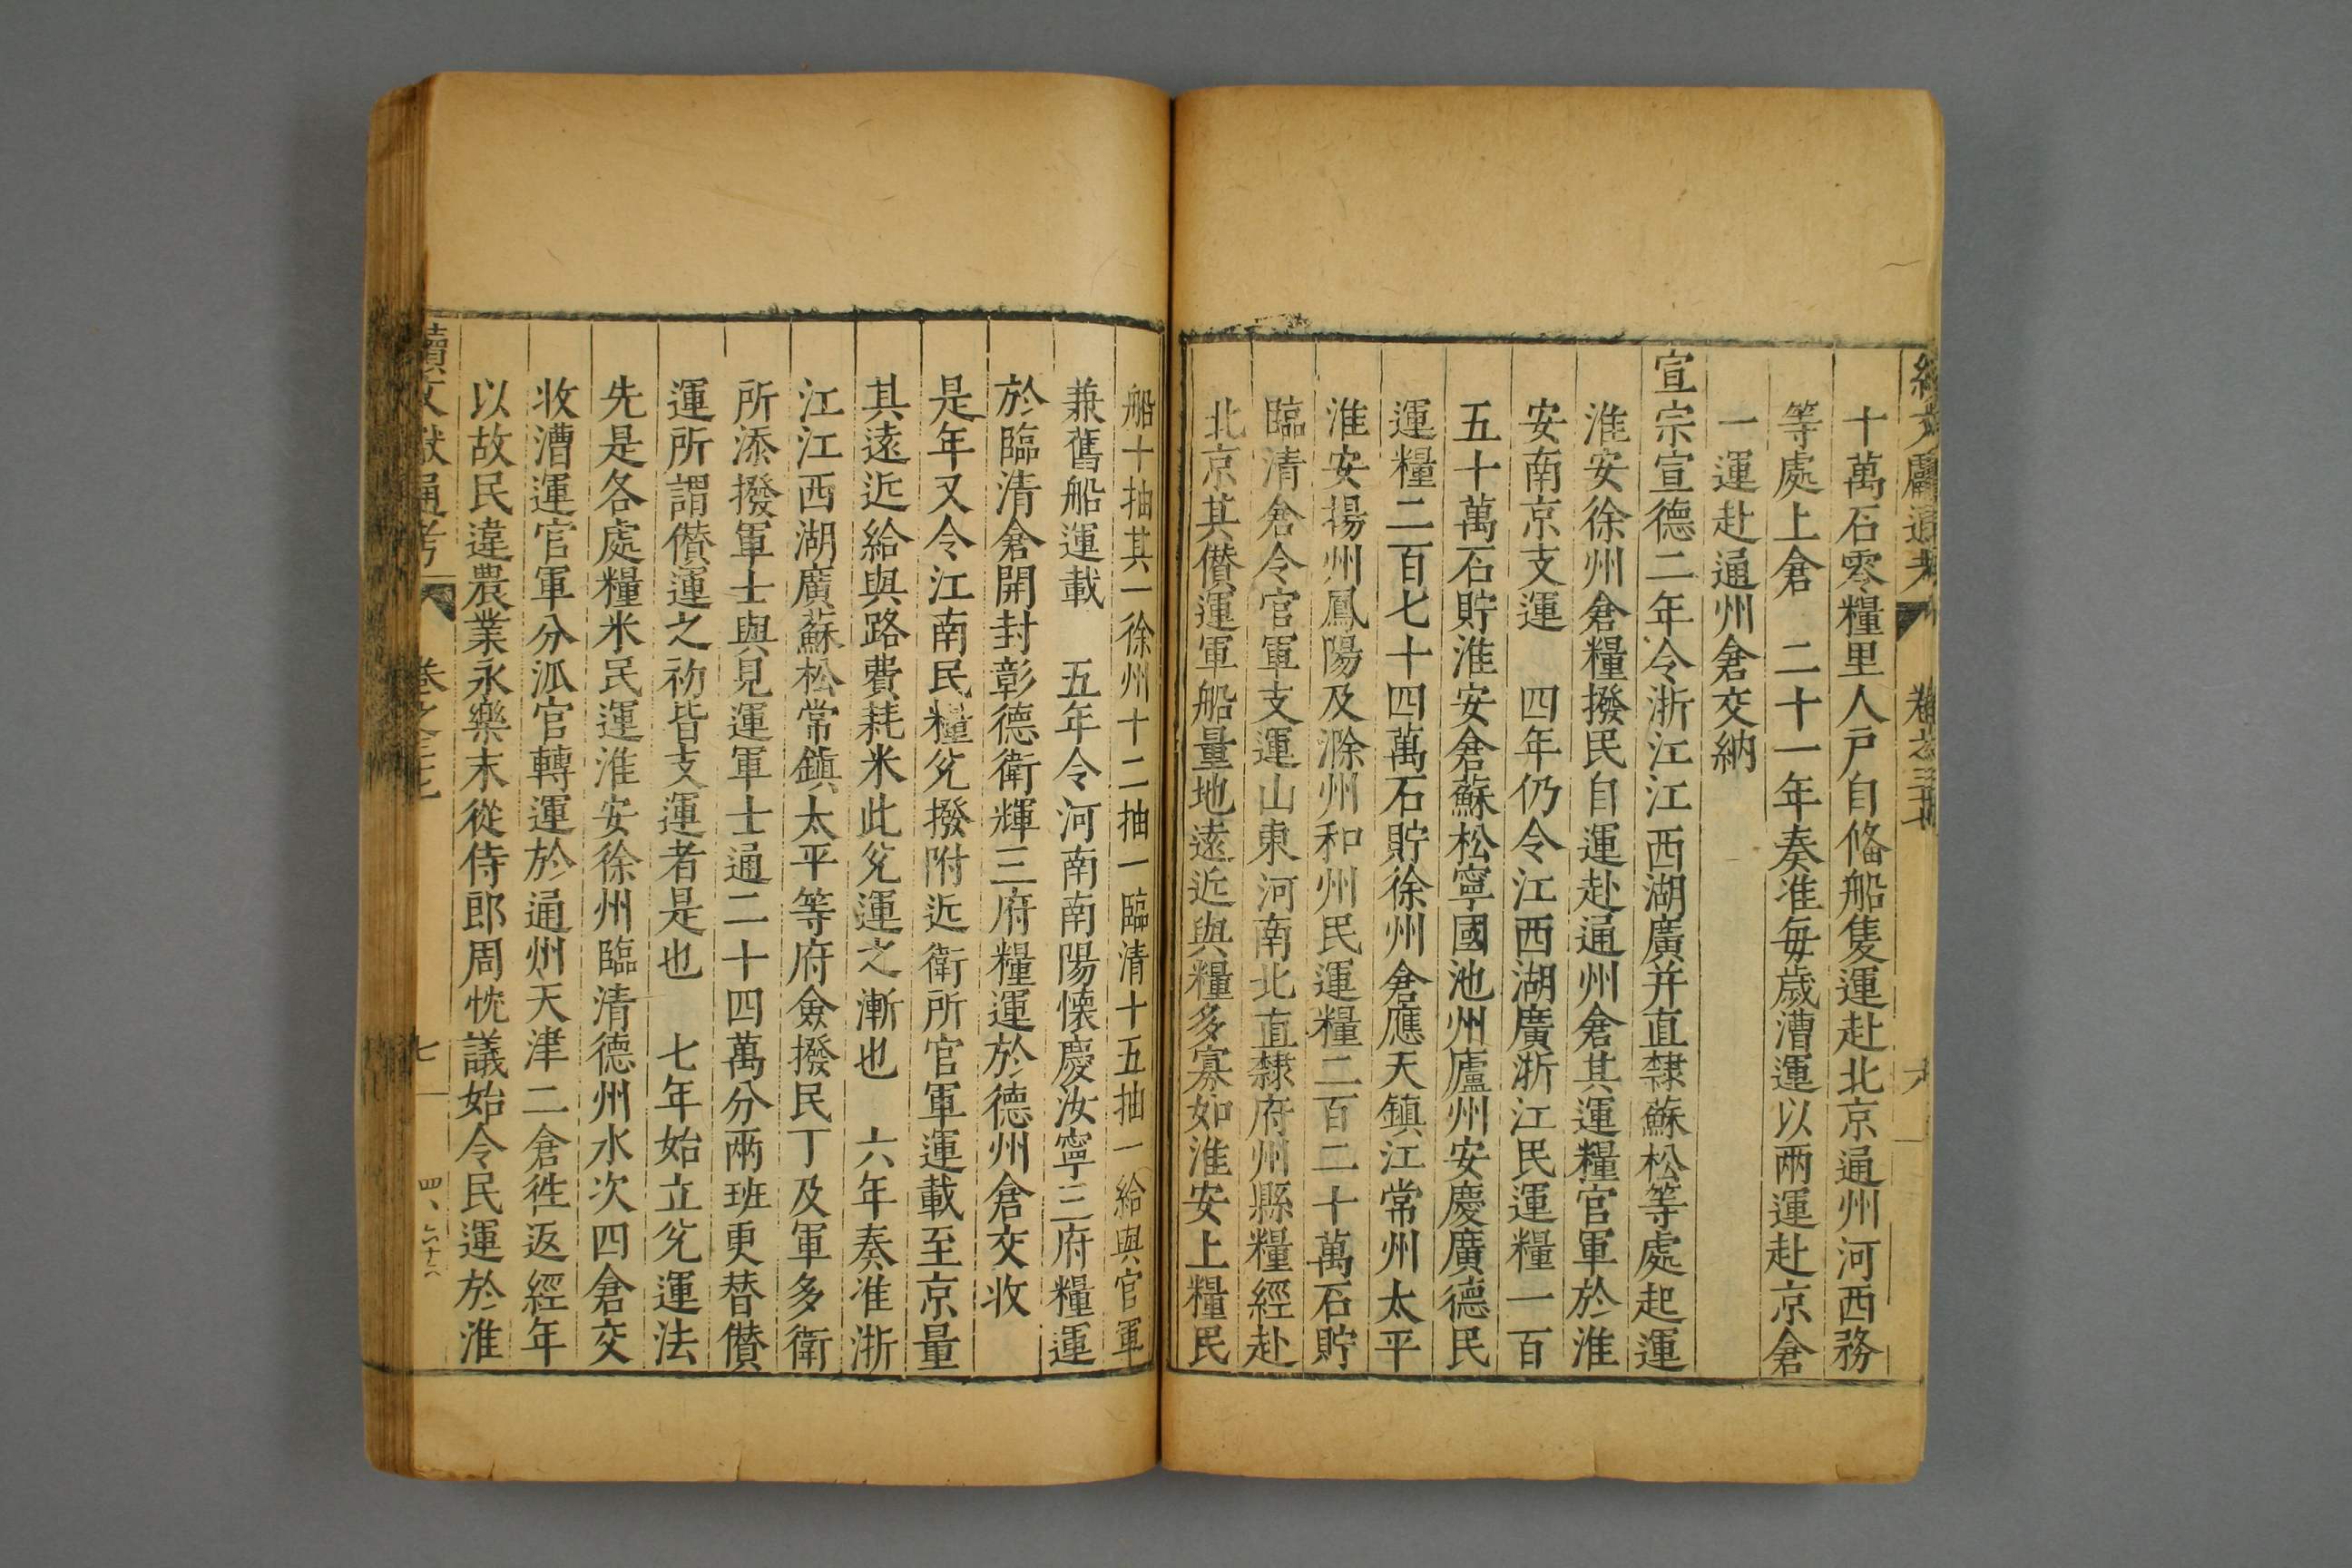 十萬石零糧里人戶自俻船隻運赴北京通州河西務
等處上倉　二十一年奏准每歲漕運以兩運赴京倉
一運赴通州倉交納
宣宗宣德二年令浙江江西湖廣并直隸蘇松等處起運
淮安徐州倉糧撥民自運赴通州倉其運糧官軍於淮
安南京支運　四年仍令江西湖廣浙江民運糧一百
五十萬石貯淮安倉蘇松寧國池州廬州安慶廣德民
運糧二百七十四萬石貯徐州倉應天鎮江常州太平
淮安揚州鳳陽及滁州和州民運糧二百二十萬石貯
臨清倉令官軍支運山東河南北直隸府州縣糧經赴
北京其儹運軍船量地遠近與糧多寡如淮安上糧民
船十抽其一徐州十二抽一臨清十五抽一給與官軍
兼舊船運載　五年令河南南陽懷慶汝寧三府糧運
於臨清倉開封彰德衛輝三府糧運於德州倉交收
是年又令江南民糧兊撥附近衛所官軍運載至京量
其遠近給與路費耗米此兊運之漸也　六年奏准浙
江江西湖廣蘇松常鎮太平等府僉撥民丁及軍多衛
所添撥軍士與見運軍士通二十四萬分兩班更替儹
運所謂儹運之初皆支運者是也　七年始立兊運法
先是各處糧米民運淮安徐州臨清德州水次四倉交
收漕運官軍分泒官轉運於通州天津二倉徃返經年
以故民違農業永樂末從侍郎周忱議始令民運於淮
續文獻通考　卷之三七　七